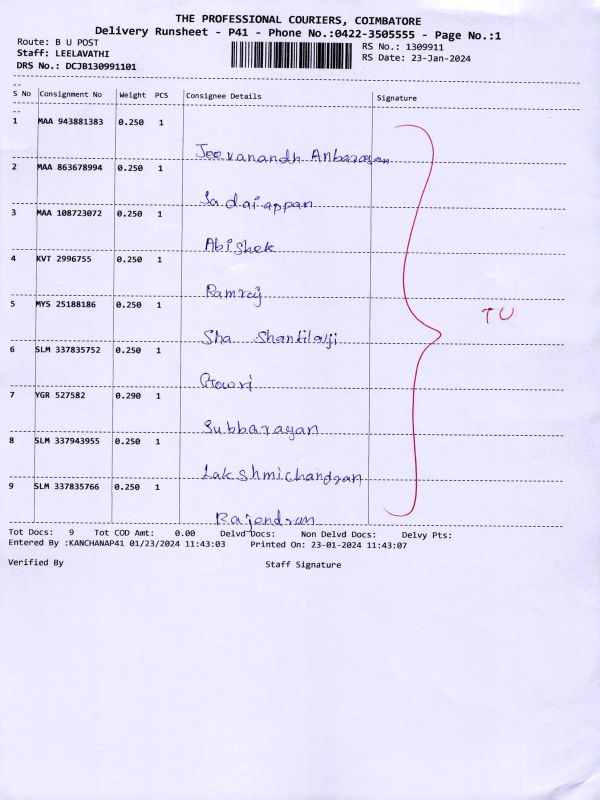 THE PROFESSIONAL COURIERS, COIMBATORE
Delivery Runsheet - P41 - Phone No.:0422-3505555 - Page No.:1
Route: B U POST
RS No.: 1309911
Staff: LEELAVATHI
RS Date: 23-Jan-2024
DRS No.: DCJB130991101
S No Consignment No Weight PCS Consignee Details Signature
1 MAA 943881383 0.250 1
Jeevanandh Anbarasan
2 MAA 863678994 0.250 1
Sadaiappan
3 MAA 108723072 0.250 1
Abishek
4 KVT 2996755 0.250 1
Ramraj
5 MYS 25188186 0.250 1
Sha Shantilalji
6 SLM 337835752 0.250 1
Gowri
7 YGR 527582 0.290 1
Subbarayan
8 SLM 337943955 0.250 1
Lakshmichandran
9 SLM 337835766 0.250 1
Rajendran
Tot Docs: 9 Tot COD Amt: 0.00 Delvd Docs: Non Delvd Docs: Delvy Pts:
Entered By :KANCHANAP41 01/23/2024 11:43:03 Printed On: 23-01-2024 11:43:07
Verified By Staff Signature